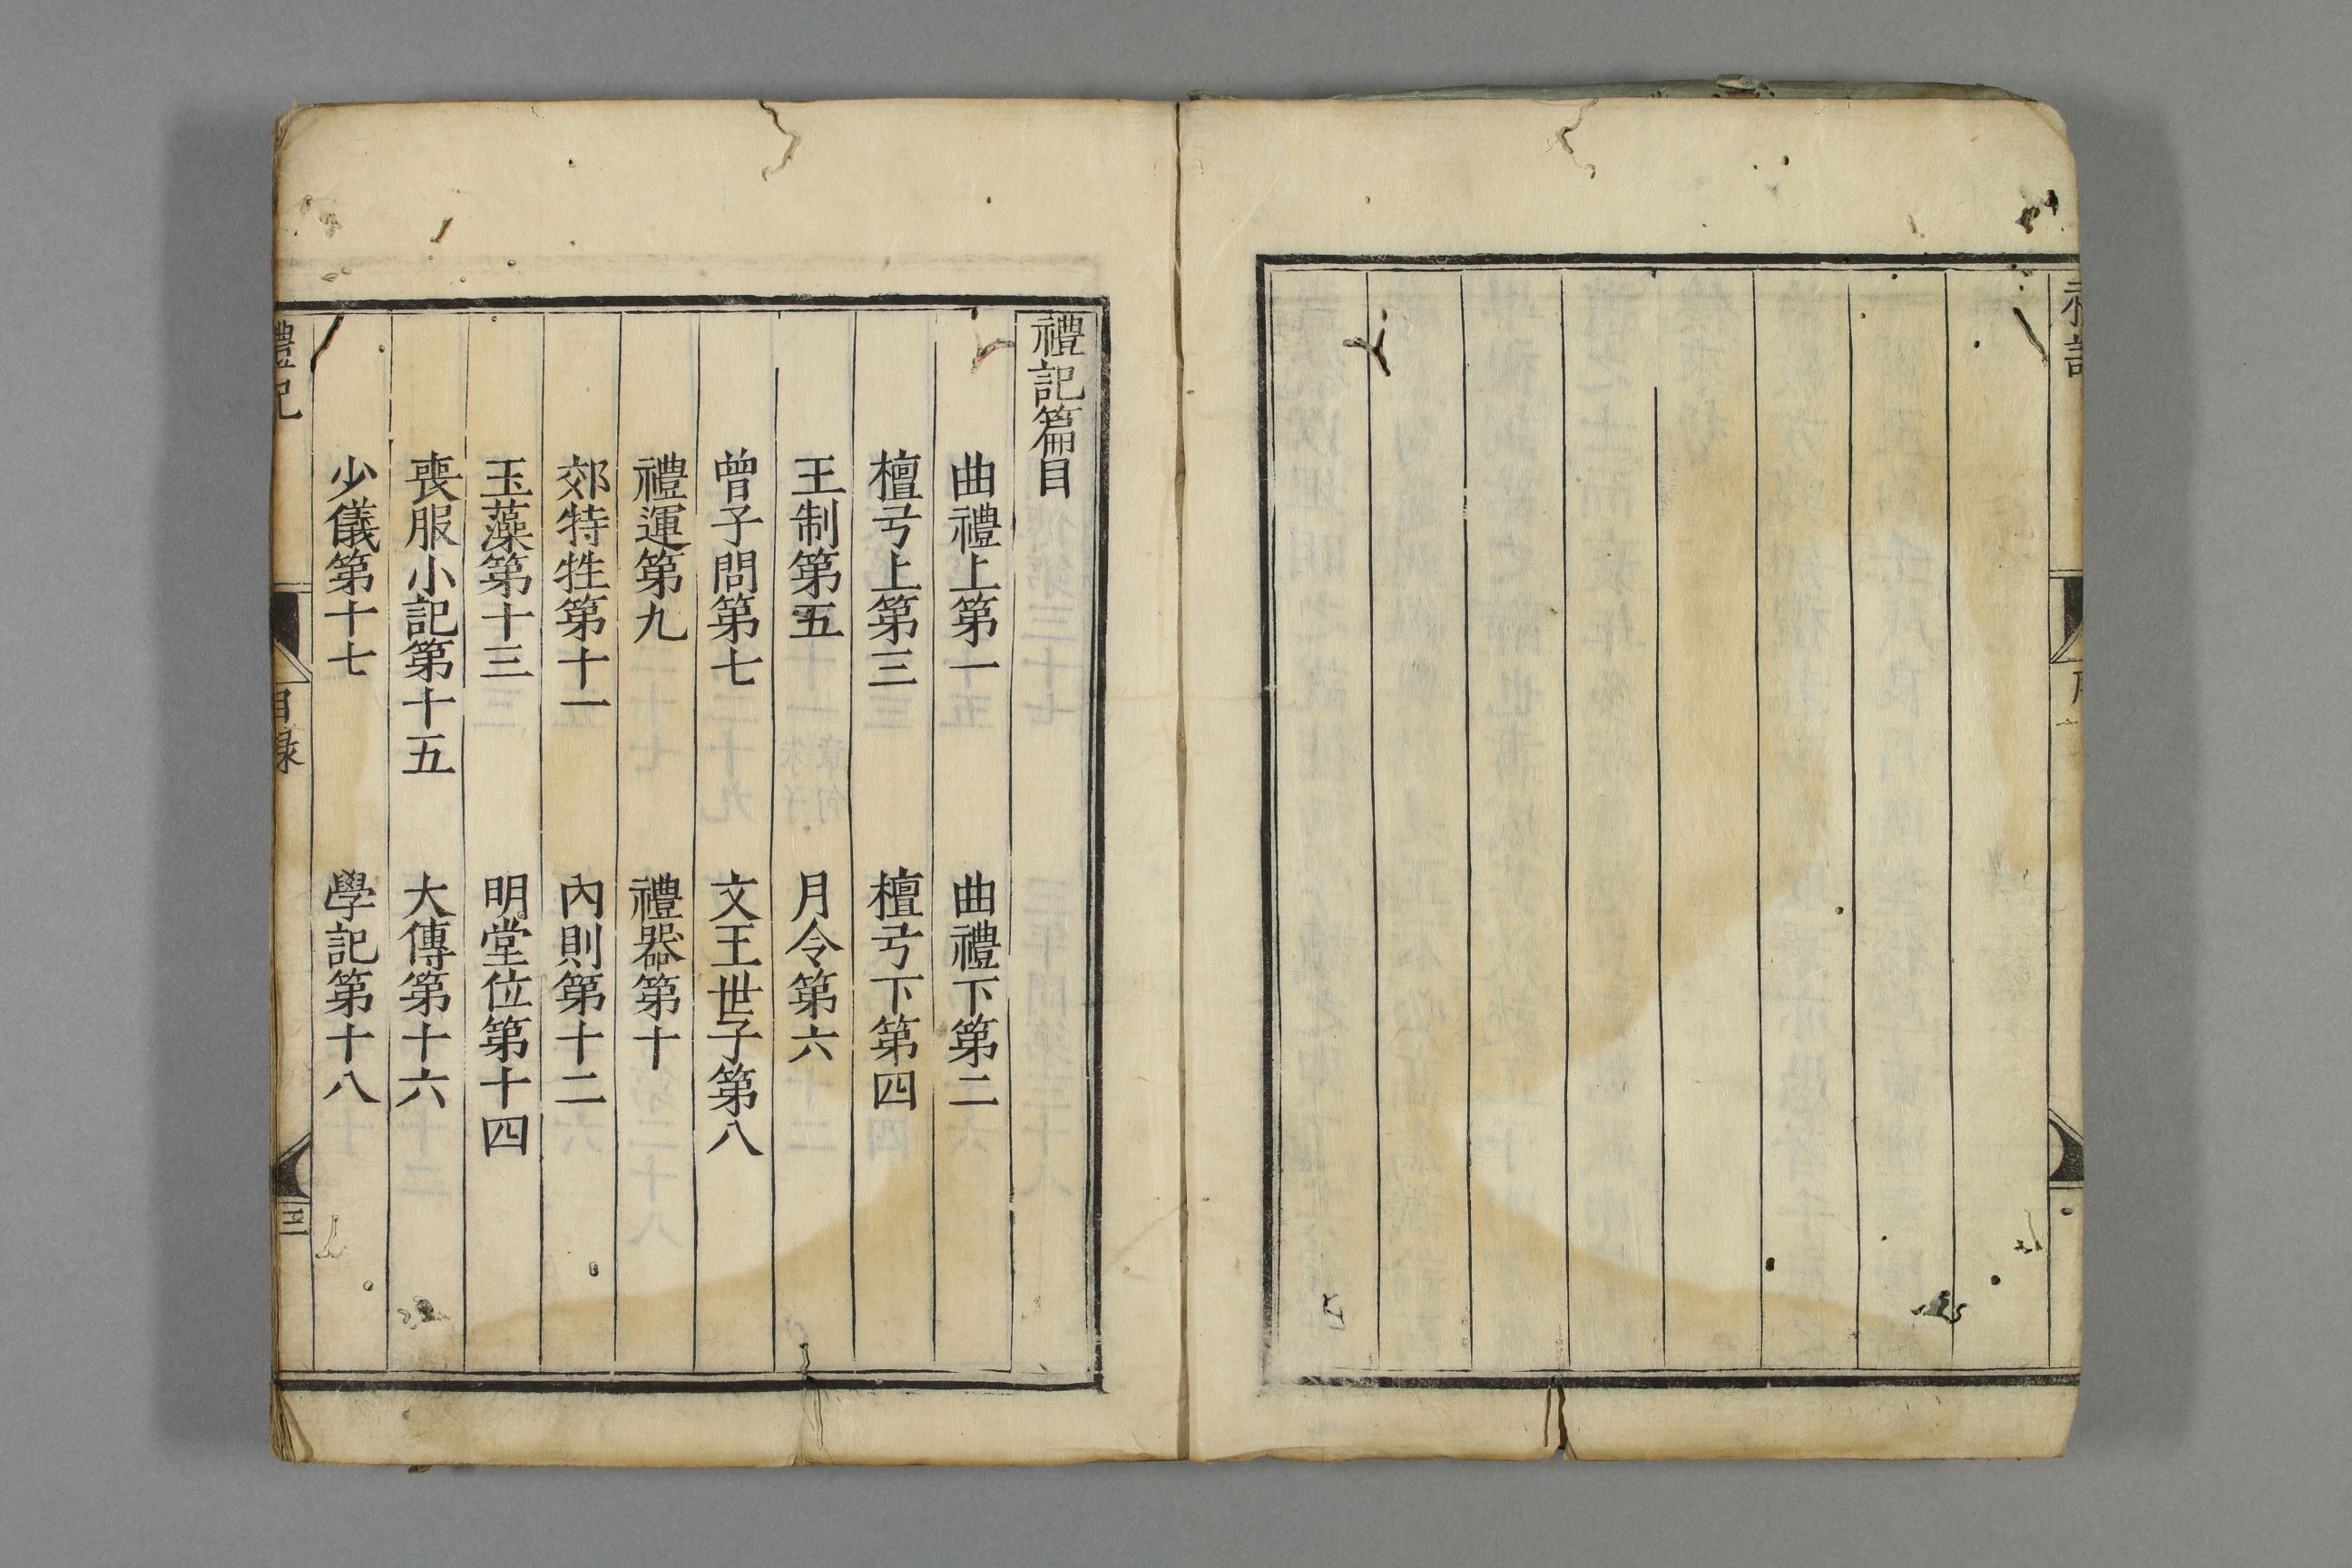 禮記篇目
曲禮上第一　曲禮下第二
檀弓上第三　檀弓下第四
王制第五　月令第六
曾子問第七　文王世子第八
禮運第九　禮器第十
郊特牲第十一　內則第十二
玉藻第十三　明堂位第十四
喪服小記第十五　大傳第十六
少儀第十七　學記第十八
禮記
目錄